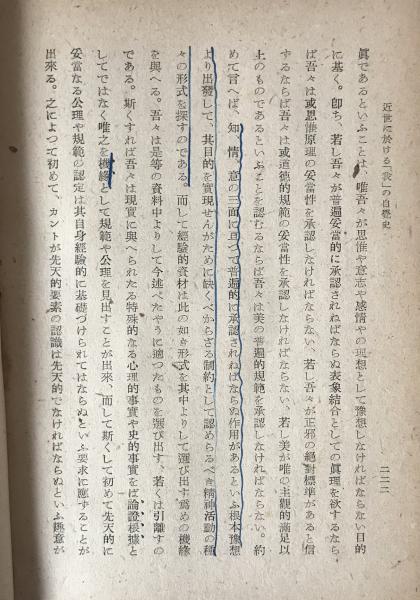 近世に於ける「我」の自覺史
二二二
眞であるといふことは、唯吾々が思惟や意志や感情やの理想として豫想しなければならない目的
に基く。卽ち、若し吾々が普遍妥當的に承認されねばならぬ表象結合としての眞理を欲するなら
ば吾々は或思惟原理の妥當性を承認しなければならない、若し吾々が正邪の絕對標準があると信
ずるならば吾々は或道德的規範の妥當性を承認しなければならない、若し美が唯の主觀的滿足以
上のものであるといふことを認むるならば吾々は美の普遍的規範を承認しなければならない。約
めて言へば、知、情、意の三面に亘つて普遍的に承認されねばならぬ作用があるといふ根本豫想
より出發して、其目的を實現せんがために缺くべからざる制約として認めらるべき精神活動の種
々の形式を探すのである。而して經驗的資材は此の如き形式を其中よりして選び出す爲めの機緣
を與へる。吾々は是等の資料中よりして今述べたやうに適つたものを選び出す、若くは引離すの
である。斯くすれば吾々は現實に與へられたる特殊的な心理的事實や史的事實をば論證根據と
してではなく唯之を機緣として規範や公理を見出すことが出來、而して斯くして初めて先天的に
妥當なる公理や規範の認定は其自身經驗的に基礎づけられてはならぬといふ要求に應ずることが
出來る。之によつて初めて、カントが先天的要素の認識は先天的でなければならぬといふ趣意が